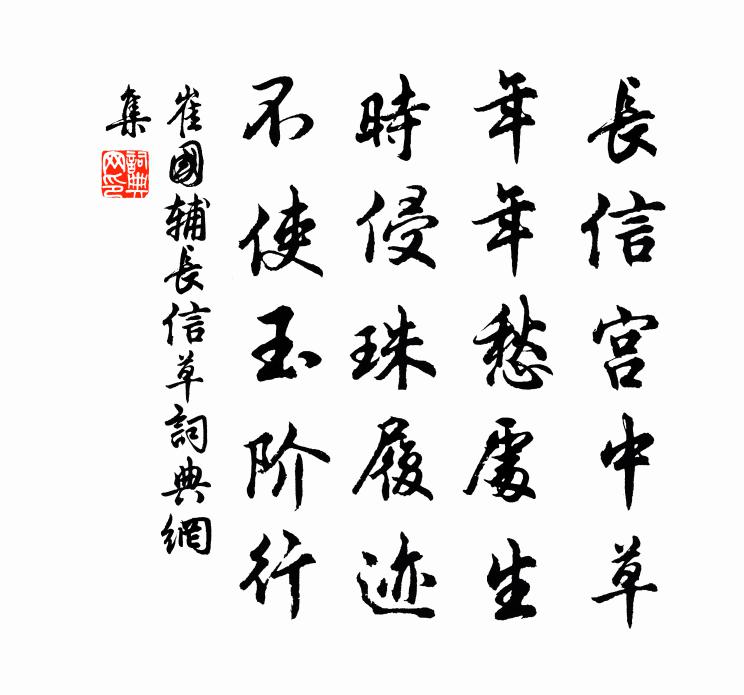 長信宫中草
年年愁處生
時侵珠履迹
不使玉阶行
崔國辅長信草詞典網
集
詞典
网印